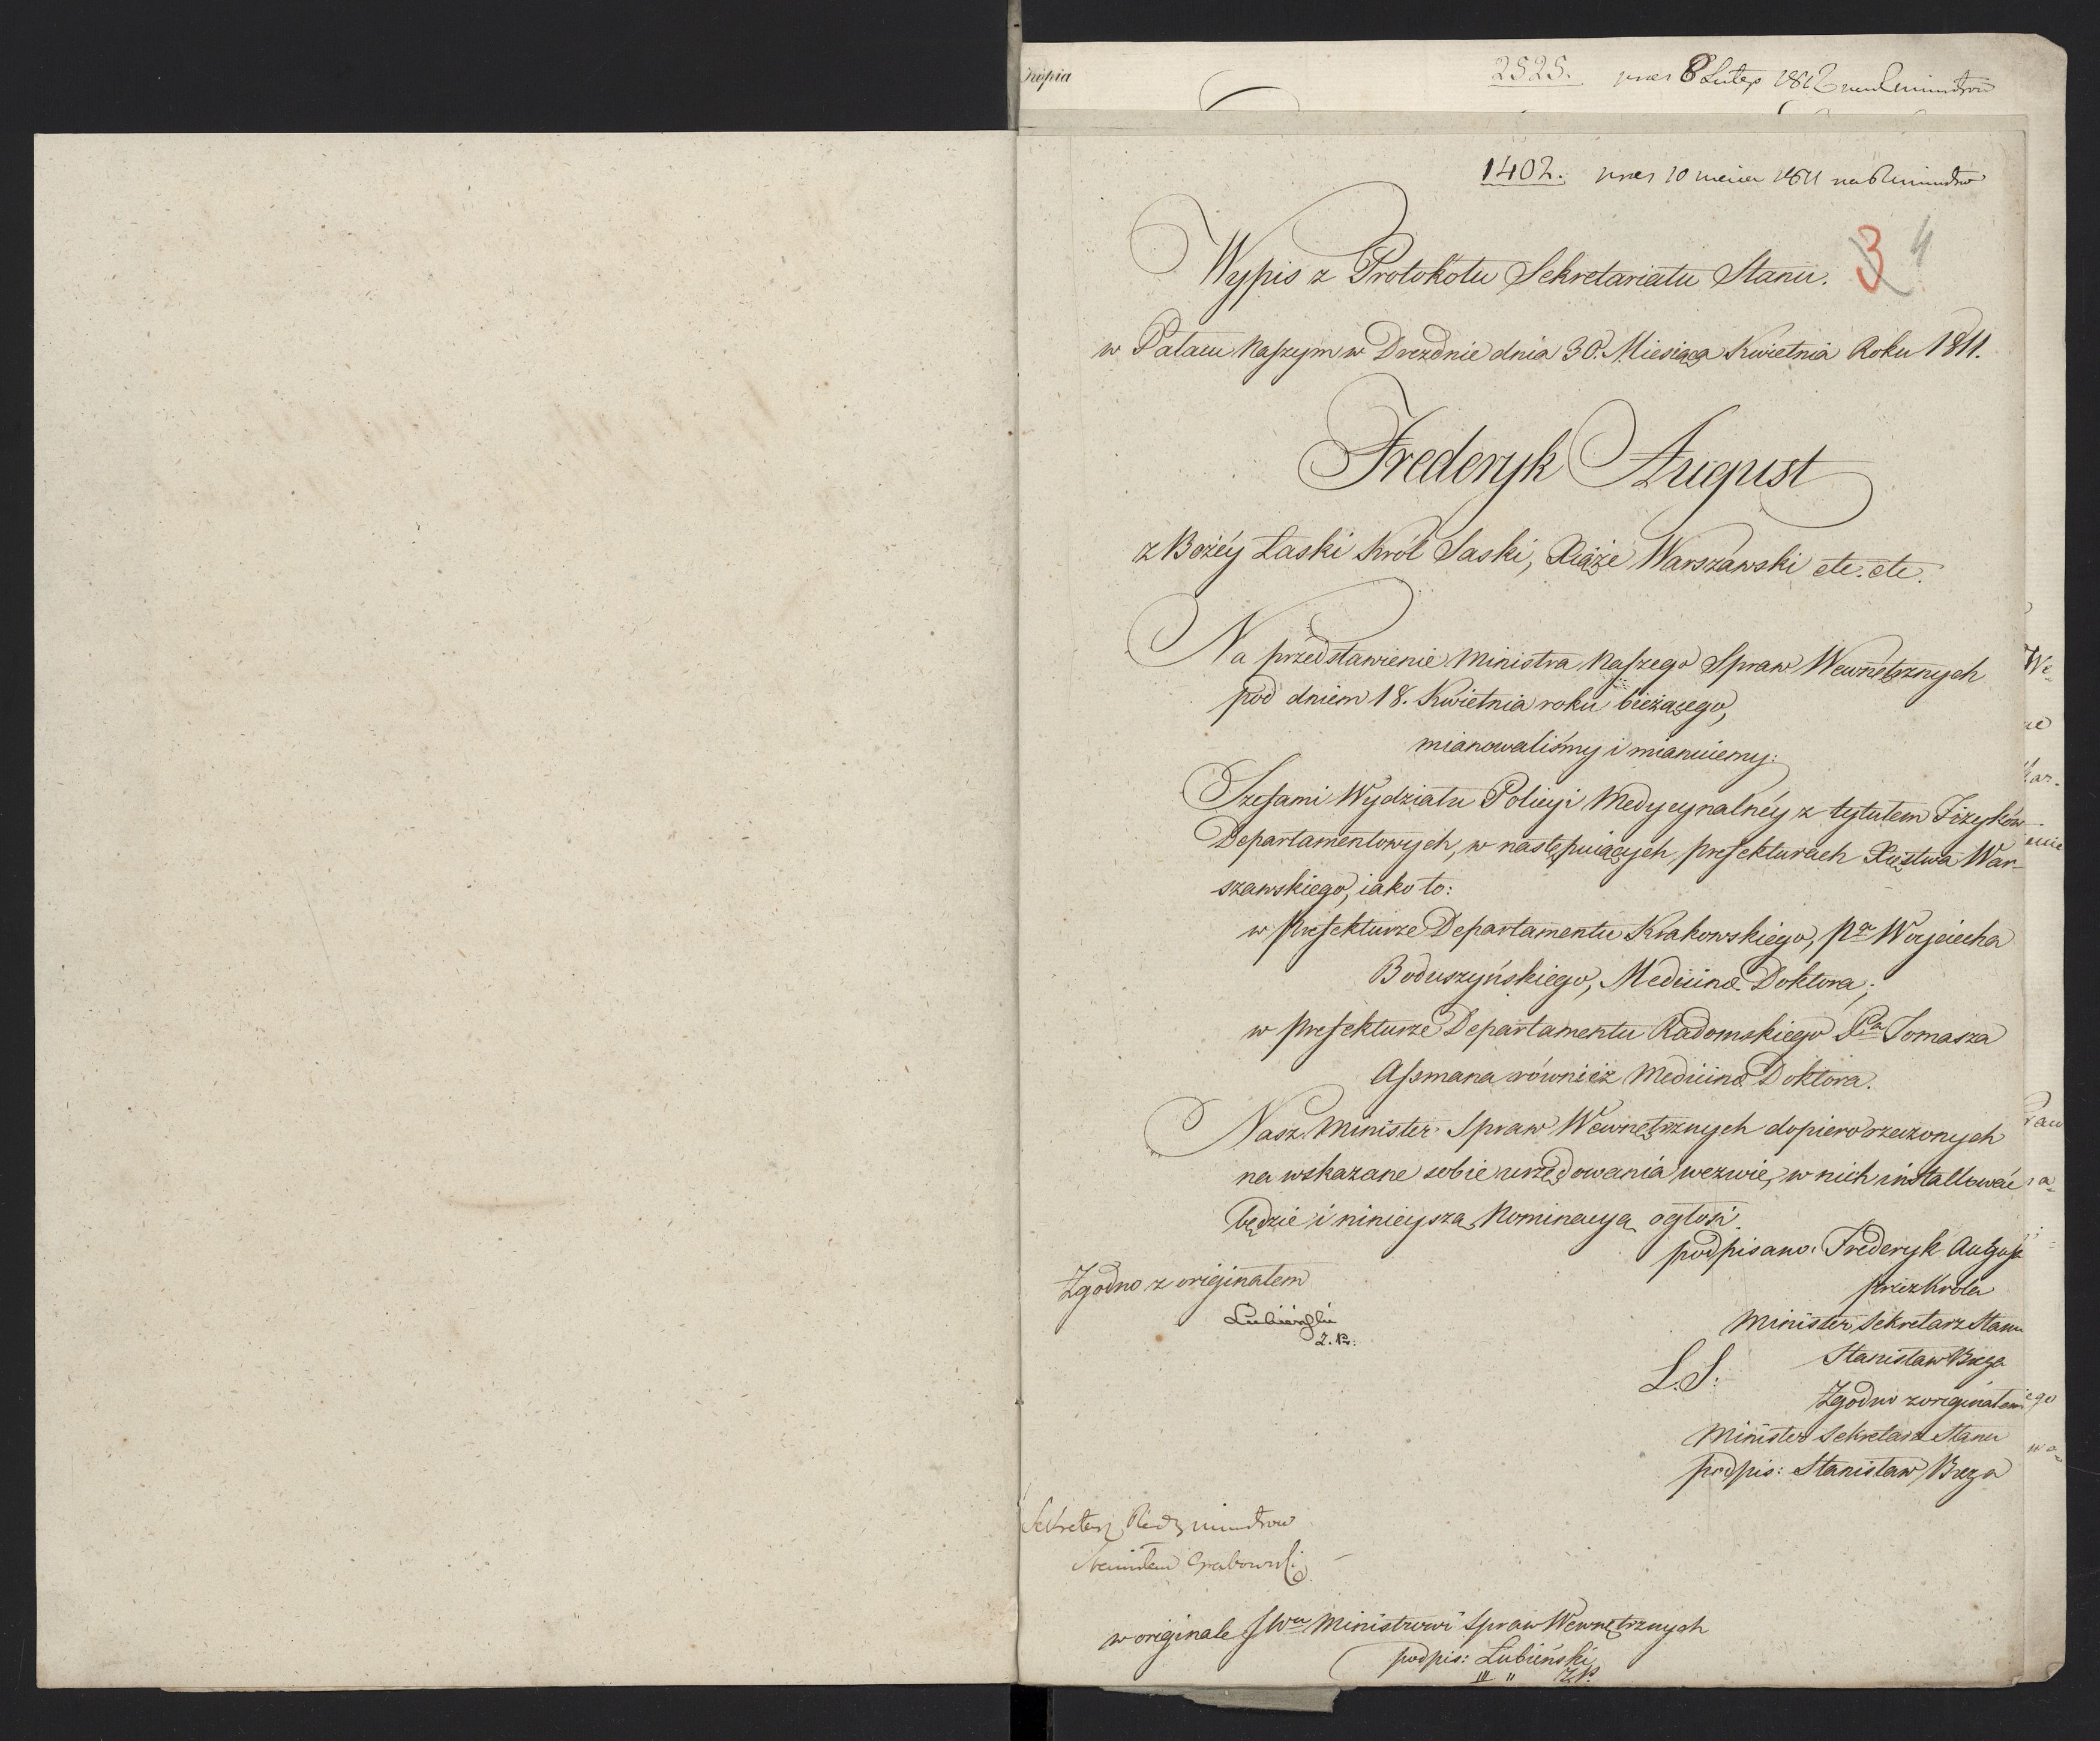 Kopia
2525. pres 8 Lutego 1812 ministrów
1402. pres 10 1811 na R ministrów
Wypis z Protokołu Sekretariatu Stanu. 3 4
w Pałacu Naszym w Dreźdnie dnia 30. Miesiąca Kwietnia Roku 1811.
Frederyk August
z Bożéy Łaski Król Saski, Xiąże Warszawski etc. etc.
Na przedstawienie Ministra Naszego Spraw Wewnętrznych
pod dniem 18. Kwietnia roku bieżącego,
mianowaliśmy i mianuiemy:
Szefami Wydziału Policyi Medycynalnéy z tytułem Fizyków
Departamentowych, w następuiących prefekturach Xięstwa War-
szawskiego, iako to:
w Prefekturze Departamentu Krakowskiego, Pna Woyciecha
Boduszyńskiego, Medicinæ Doktora;
w Prefekturze Departamentu Radomskiego Pna Tomasza
Assmana również Medicinæ Doktora.
Nasz Minister Spraw Wewnętrznych dopiero rzeczonych
na wskazane sobie urzędowania wezwie, w nich installować
będzie i ninieyszą Nominacyą ogłosi.
podpisano: Frederyk August
Zgodno z originałem
przez Króla
Lubieński
Z. P.
Minister Sekretarz Stanu
Stanisław Breza
L.S.
Zgodno z originałem
Minister Sekretarz Stanu
podpis: Stanisław Breza
Sekretarz Rady ministrów
Stanisław Grabowski
w originale JWu Ministrowi Spraw Wewnętrznych
podpis: Lubieński
Z.P.